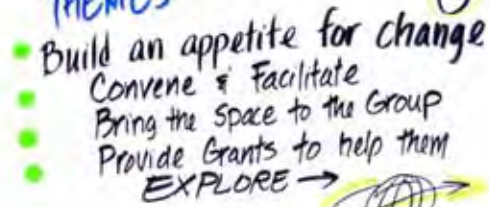 THEMES
Build an appetite for change
Convene & Facilitate
Bring the Space to the Group
Provide Grants to help them
EXPLORE →